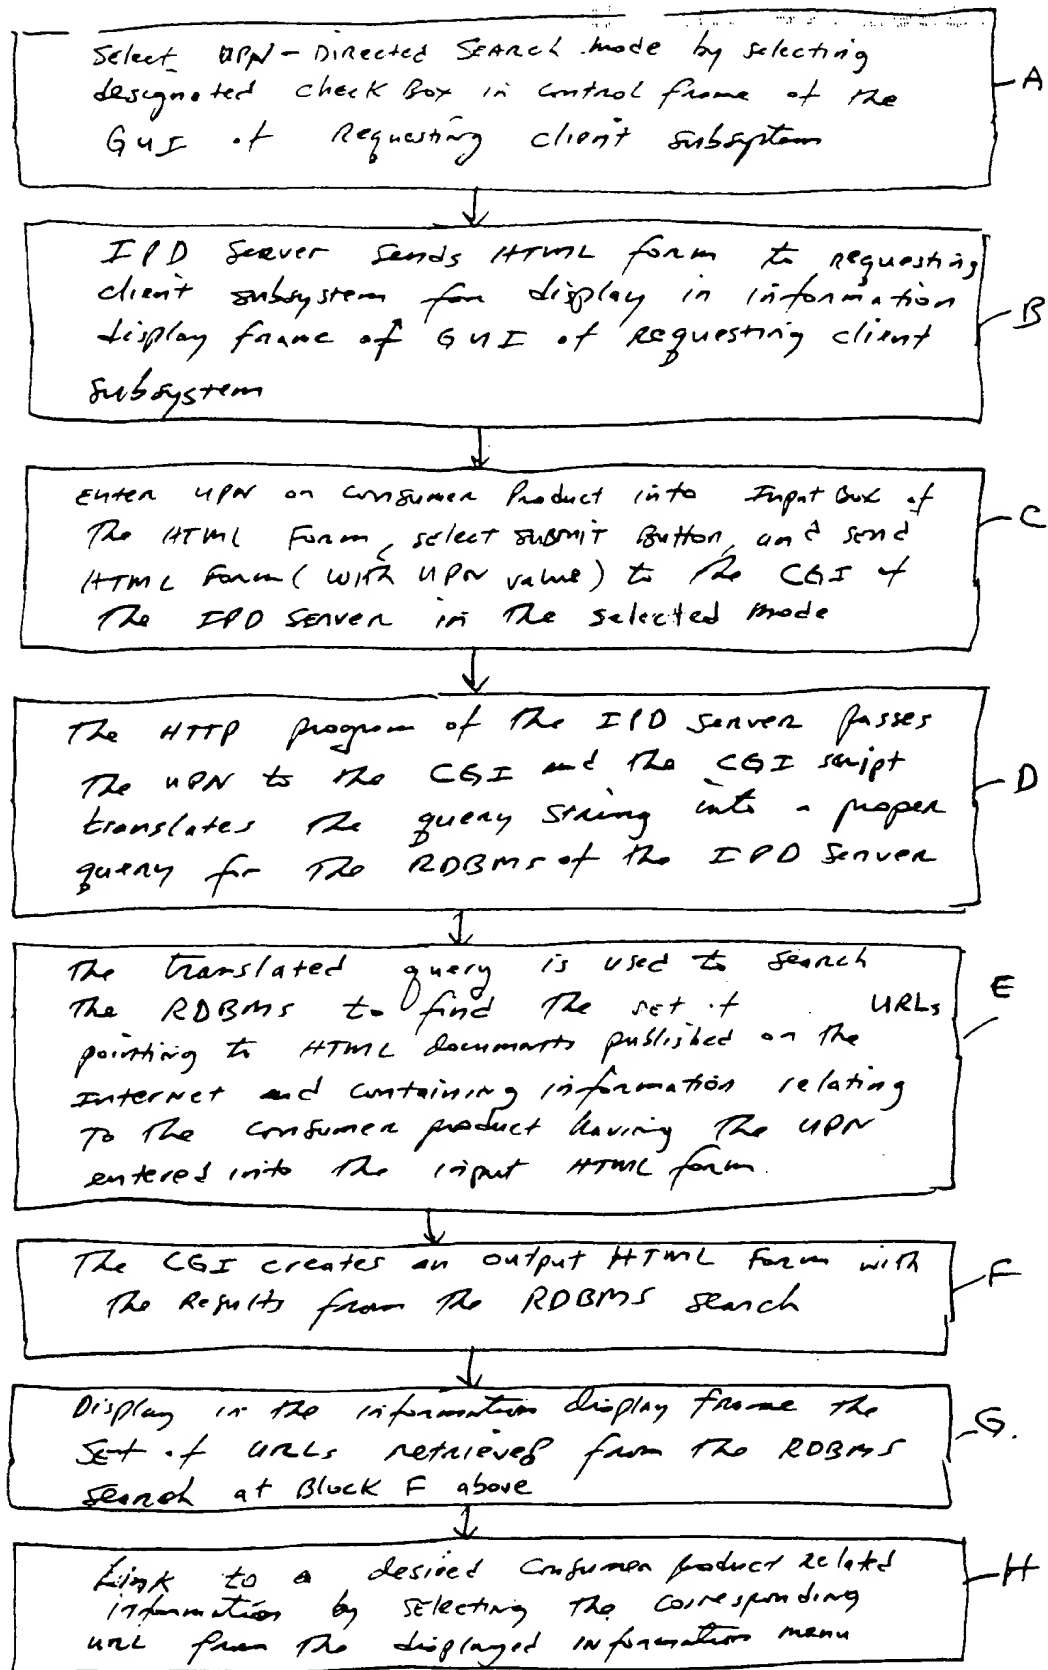 Select UPN-Directed Search mode by selecting
designated check Box in control frame of the
GUI of Requesting client subsystem
A
IPD Server sends HTML form to requesting
client subsystem for display in information
display frame of GUI of requesting client
subsystem
B
Enter UPN on Consumer Product into Input Box of
The HTML Form, select submit Button, and send
HTML Form (with UPN value) to the CGI of
The IPD Server in the selected mode
C
The HTTP program of the IPD Server passes
the UPN to the CGI and the CGI script
translates the query string into a proper
query for the RDBMS of the IPD Server
D
The translated query is used to search
the RDBMS to find the set of URLs
pointing to HTML documents published on the
Internet and containing information relating
To the consumer product having the UPN
entered into the input HTML form.
E
The CGI creates an output HTML Form with
the Results from the RDBMS search
F
Display in the information display frame the
Set of URLs retrieved from the RDBMS
Search at Block F above
G.
Link to a desired Consumer product related
information by selecting the corresponding
URL from the displayed information menu
H